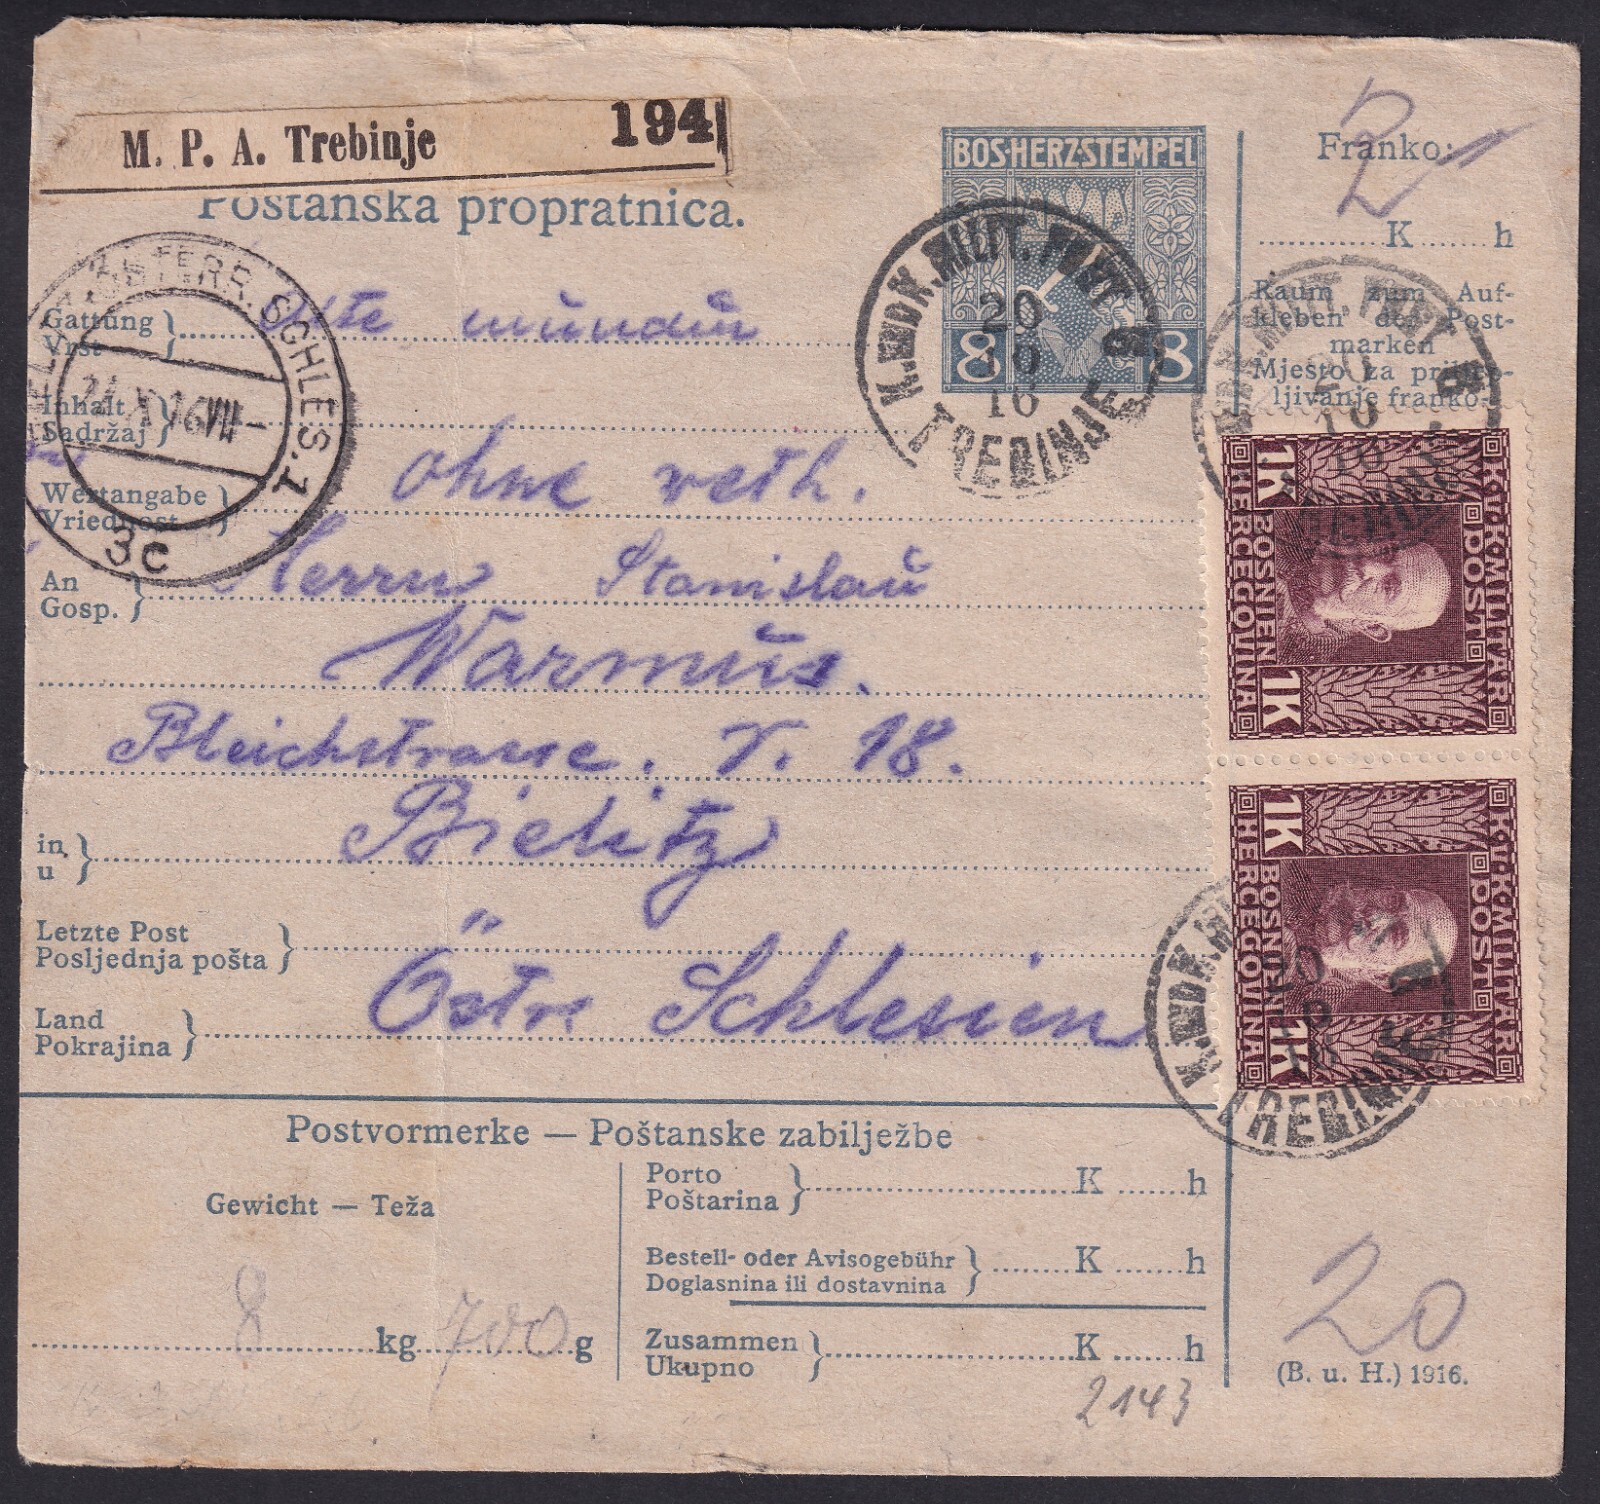 M. P. A. Trebinje 194
Poštanska propratnica.
BOS-HERZ-STEMPEL
8 8
K. UND K. MILIT. POST
20
10
16
TREBINJE
a
Franko:
2
K h
Raum zum Auf-
kleben der Post-
marken
Mjesto za priljep-
ljivanje franko-
ÖSTERR. SCHLES. 1
24 X 16 VIII
3c
Gattung
Vrst
Inhalt
Sadržaj
Wertangabe
Vriednost
ohne
An
Gosp.
Herrn Stanislau
Warmus.
Bleichstrasse. 18.
in
u
Bielitz
Letzte Post
Posljednja pošta
Land
Pokrajina
Östr. Schlesien
K.u.K. MILITÄRPOST
1K BOSNIEN 1K
HERCEGOVINA
K.u.K. MILITÄRPOST
1K BOSNIEN 1K
HERCEGOVINA
K. UND K.
TREBINJE
Postvormerke — Poštanske zabilježbe
Gewicht — Teža
8 kg 700 g
Porto
Poštarina
K h
Bestell- oder Avisogebühr
Doglasnina ili dostavnina
K h
Zusammen
Ukupno
K h
2143
20
(B. u. H.) 1916.